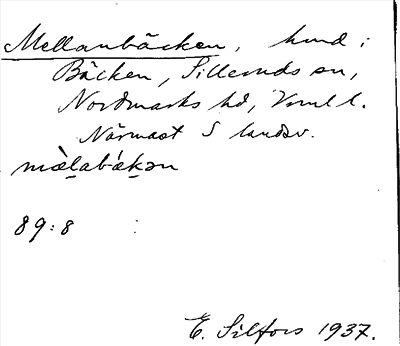 Mellanbäcken, hmd i
Bäcken, Silleruds sn,
Nordmarks hd, Vrml l.
Närmast S landsv.
mèlabákən
89:8
E. Silfors 1937.